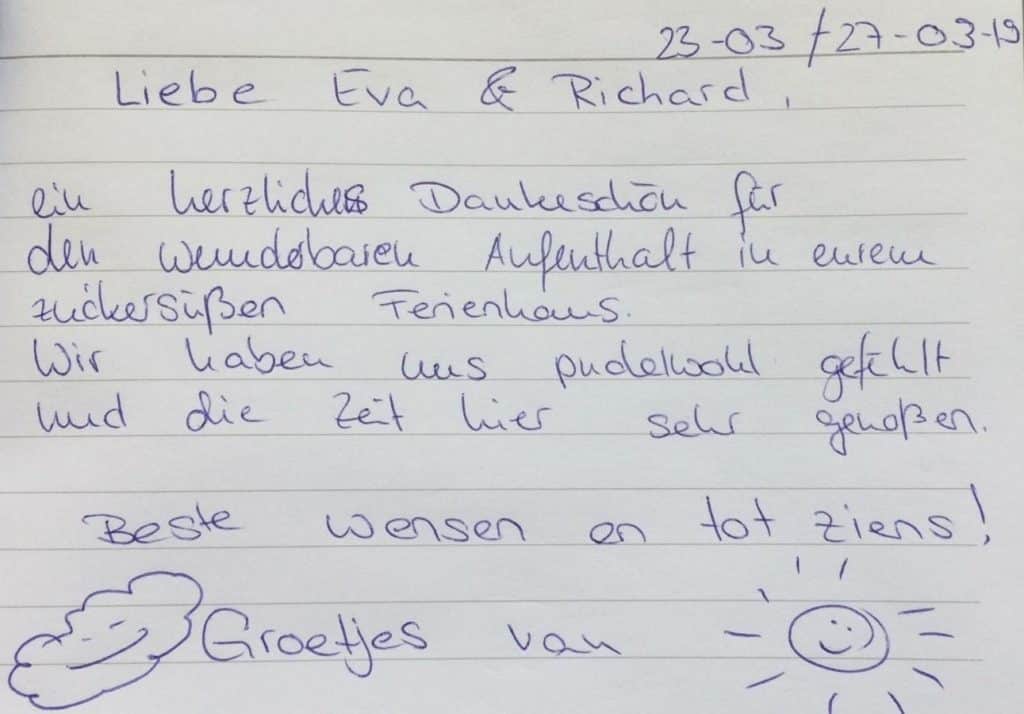 23-03 / 27-03-19
Liebe Eva & Richard,
ein herzliches Dankeschön für
den wunderbaren Aufenthalt in eurem
zuckersüßen Ferienhaus.
Wir haben uns pudelwohl gefühlt
und die Zeit hier sehr genoßen.
Beste wensen en tot ziens!
Groetjes van